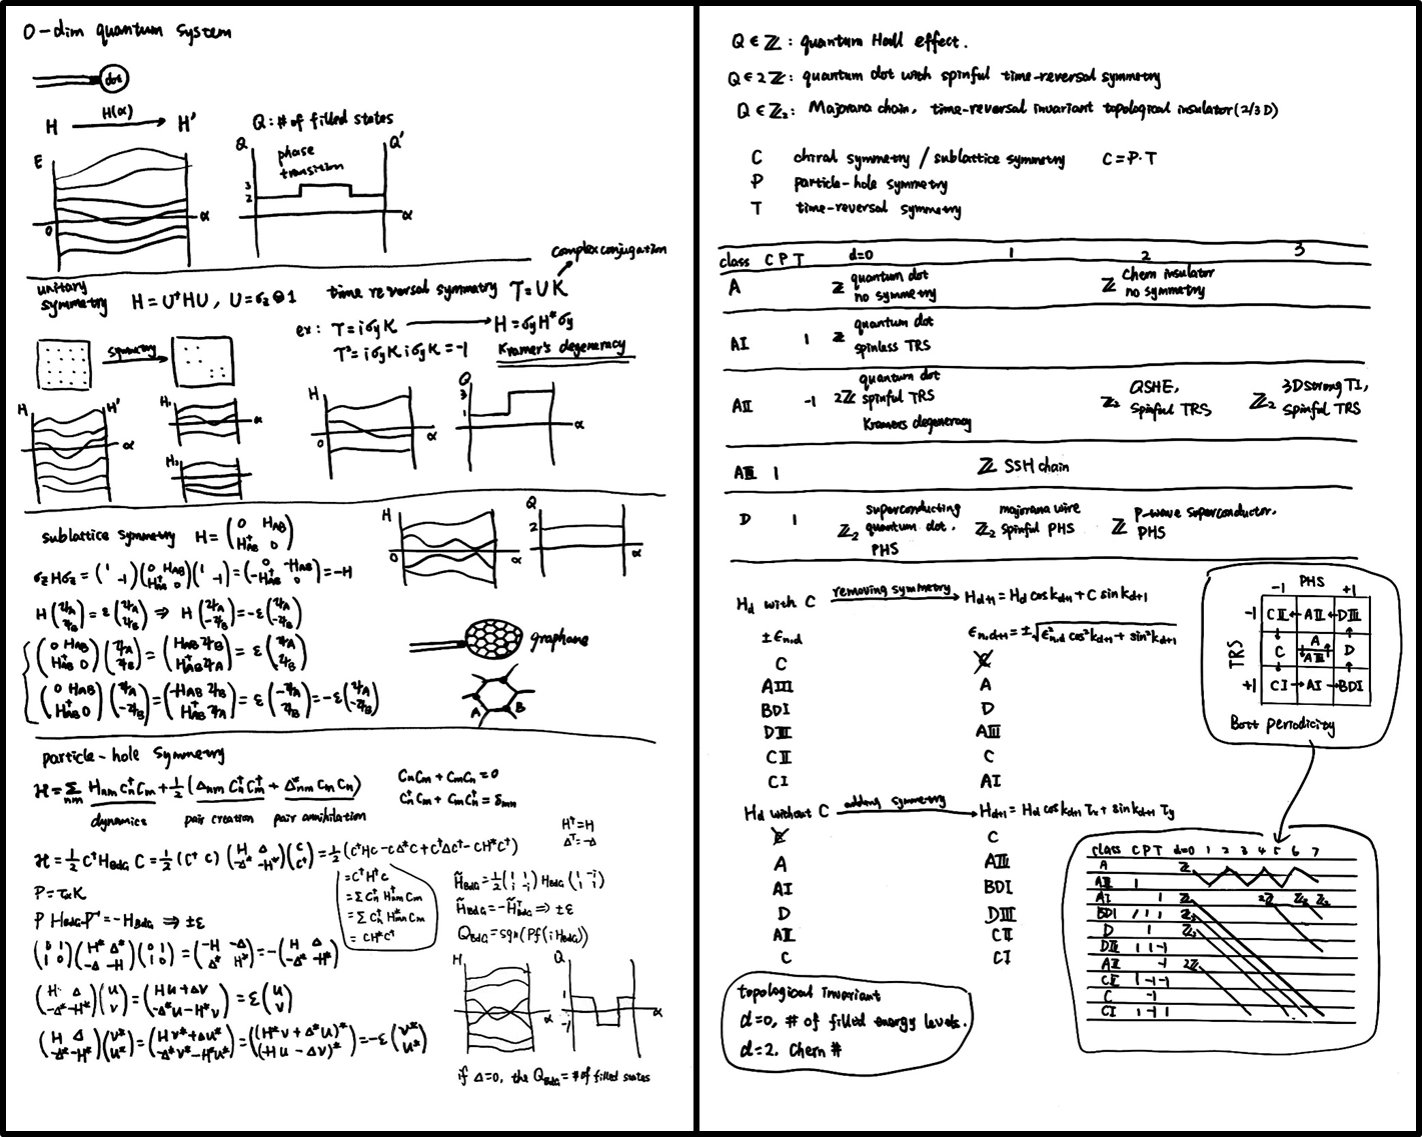 0-dim quantum system
dot
H H(α) H'
Q: # of filled states
E
0
α
Q
Q'
phase
transition
3
2
α
unitary
symmetry H = U†HU, U = σz⊗1
time reversal symmetry T = UK
complex conjugation
ex: T = iσyK → H = σyH*σy
T² = iσyK iσyK = -1 Kramer's degeneracy
symmetry
H H' α
H₁ α
H₂
H 0 α
Q 3 1 α
sublattice symmetry H = (0 HAB; H†AB 0)
σzHσz = (1 -1)(0 HAB; H†AB 0)(1 -1) = (0 -HAB; -H†AB 0) = -H
H(ψA; ψB) = ε(ψA; ψB) ⇒ H(ψA; -ψB) = -ε(ψA; -ψB)
(0 HAB; H†AB 0)(ψA; ψB) = (HABψB; H†ABψA) = ε(ψA; ψB)
(0 HAB; H†AB 0)(ψA; -ψB) = (-HABψB; H†ABψA) = ε(-ψA; ψB) = -ε(ψA; -ψB)
H 0 α
Q 2 α
graphane
A B
particle-hole symmetry
ℋ = Σnm Hnm c†n cm + ½(Δnm c†n c†m + Δ*nm cm cn)
dynamics pair creation pair annihilation
cncm + cmcn = 0
c†ncm + cmc†n = δmn
H† = H
Δᵀ = -Δ
ℋ = ½ C†HBdG C = ½(c† c)(H Δ; -Δ* -H*)(c; c†) = ½(c†Hc - cΔ*c + c†Δc† - cH*c†)
= c†H†c
= Σ c†n H†nm cm
= Σ c†n H*mn cm
= cH*c†
P = τxK
P HBdG P⁻¹ = -HBdG ⇒ ±ε
H̃BdG = ½(1 1; i -i) HBdG (1 -i; 1 i)
H̃BdG = -H̃ᵀBdG ⇒ ±ε
QBdG = sgn(Pf(iHBdG))
(0 1; 1 0)(H* Δ*; -Δ -H)(0 1; 1 0) = (-H -Δ; Δ* H*) = -(H Δ; -Δ* -H*)
(H Δ; -Δ* -H*)(u; v) = (Hu+Δv; -Δ*u-H*v) = ε(u; v)
(H Δ; -Δ* -H*)(v*; u*) = (Hv*+Δu*; -Δ*v*-H*u*) = ((H*v+Δ*u)*; (-Hu-Δv)*) = -ε(v*; u*)
H α
Q 1 -1 α
if Δ=0, the QBdG = # of filled states
Q ∈ ℤ : quantum Hall effect.
Q ∈ 2ℤ : quantum dot with spinful time-reversal symmetry
Q ∈ ℤ₂ : Majorana chain, time-reversal invariant topological insulator (2/3D)
C chiral symmetry / sublattice symmetry C = P·T
P particle-hole symmetry
T time-reversal symmetry
class C P T d=0 1 2 3
A ℤ quantum dot no symmetry ℤ Chern insulator no symmetry
AI 1 ℤ quantum dot spinless TRS
AII -1 2ℤ quantum dot spinful TRS Kramers degeneracy ℤ₂ QSHE, Spinful TRS ℤ₂ 3D strong TI, Spinful TRS
AIII 1 ℤ SSH chain
D 1 ℤ₂ superconducting quantum dot, PHS ℤ₂ majorana wire Spinful PHS ℤ P-wave superconductor, PHS
Hd with C removing symmetry → Hd+1 = Hd cos kd+1 + C sin kd+1
±εn,d εn,d+1 = ±√(ε²n,d cos²kd+1 + sin²kd+1)
C C̸
AIII A
BDI D
DIII AII
CII C
CI AI
Hd without C adding symmetry → Hd+1 = Hd cos kd+1 τx + sin kd+1 τy
C̸ C
A AIII
AI BDI
D DIII
AII CII
C CI
PHS
-1 +1
TRS
-1 CII ← AII → DIII
C A AIII D
+1 CI → AI → BDI
Bott periodicity
topological invariant
d=0, # of filled energy levels.
d=2. Chern #
class C P T d=0 1 2 3 4 5 6 7
A ℤ
AIII 1
AI 1 ℤ 2ℤ ℤ₂ ℤ₂
BDI 1 1 1 ℤ₂
D 1 ℤ₂
DIII 1 1 -1
AII -1 2ℤ
CII 1 -1 -1
C -1
CI 1 -1 1